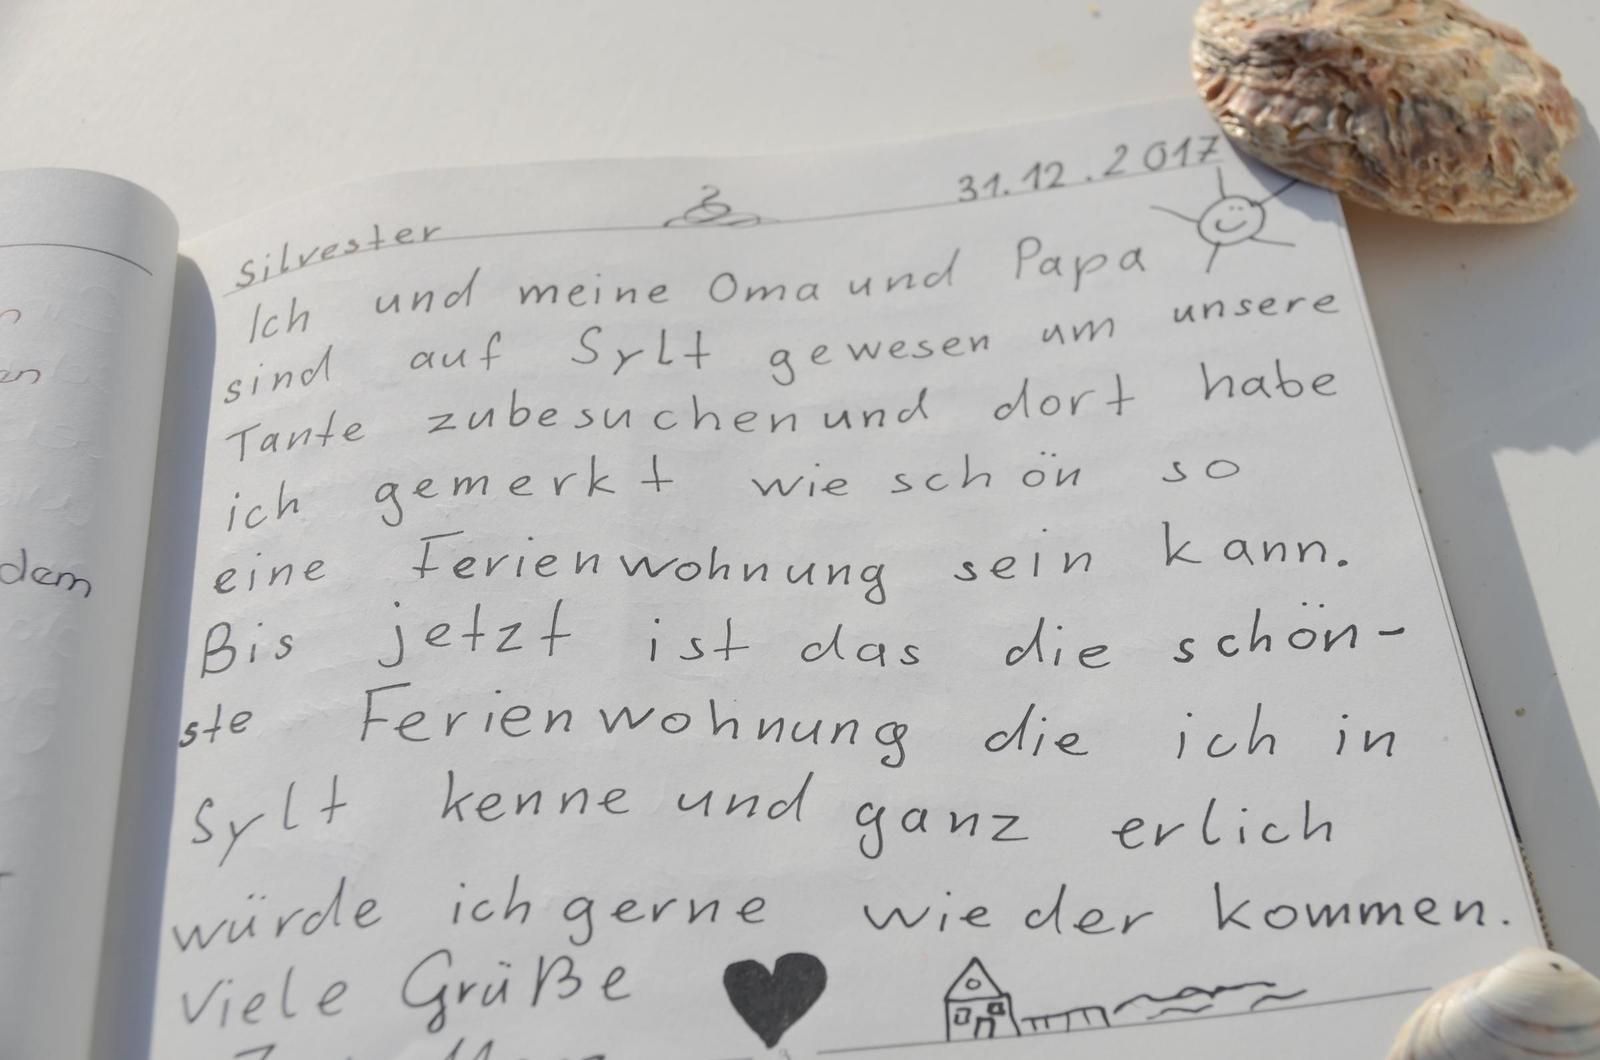 Silvester 31.12.2017
Ich und meine Oma und Papa
sind auf Sylt gewesen um unsere
Tante zubesuchen und dort habe
ich gemerkt wie schön so
eine Ferienwohnung sein kann.
Bis jetzt ist das die schön-
ste Ferienwohnung die ich in
Sylt kenne und ganz erlich
würde ich gerne wieder kommen.
Viele Grüße
dem